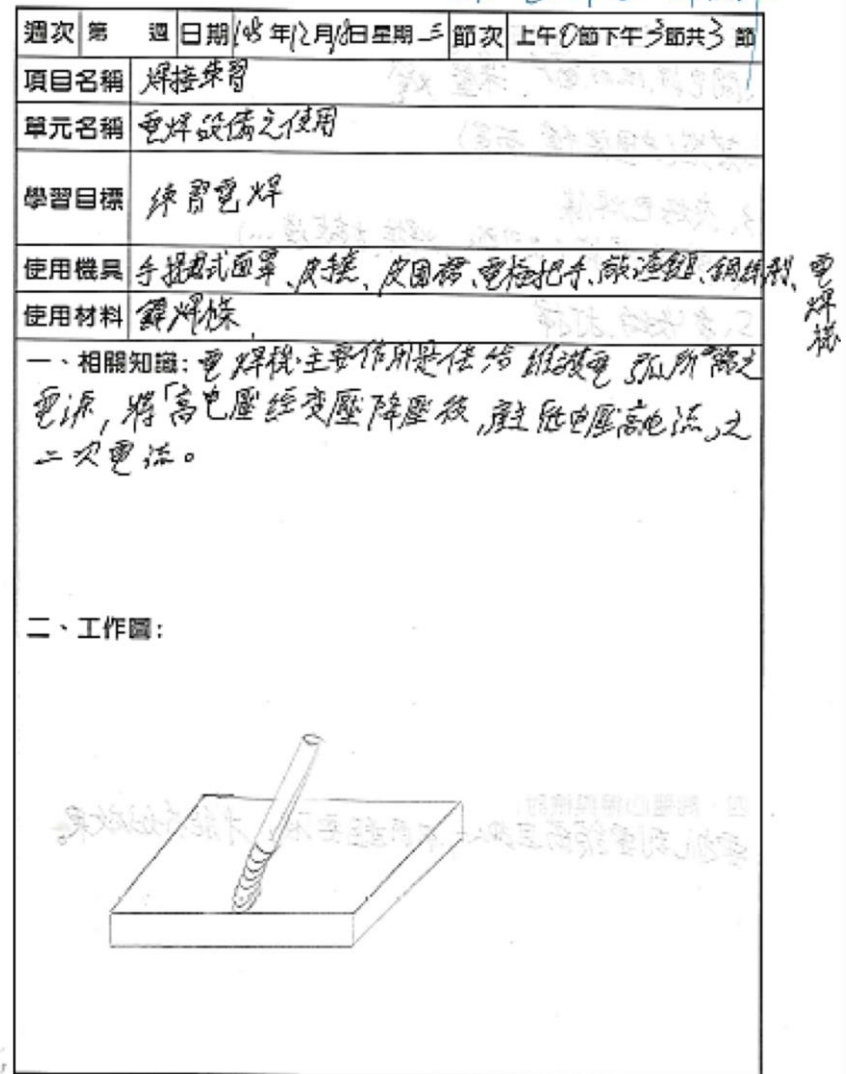 週次 第 週 日期 108年12月18日星期三 節次 上午0節下午3節共3節
項目名稱 焊接練習
單元名稱 電焊設備之使用
學習目標 練習電焊
使用機具 手提式面罩、皮手套、皮圍裙、電極把手、敲渣鎚、鋼絲刷、電焊機
使用材料 焊條
一、相關知識:電焊機主要作用是供給維護電弧所需之
電源,將「高电壓經变壓降壓後,產生低电壓高电流」之
二次電流。
二、工作圖: